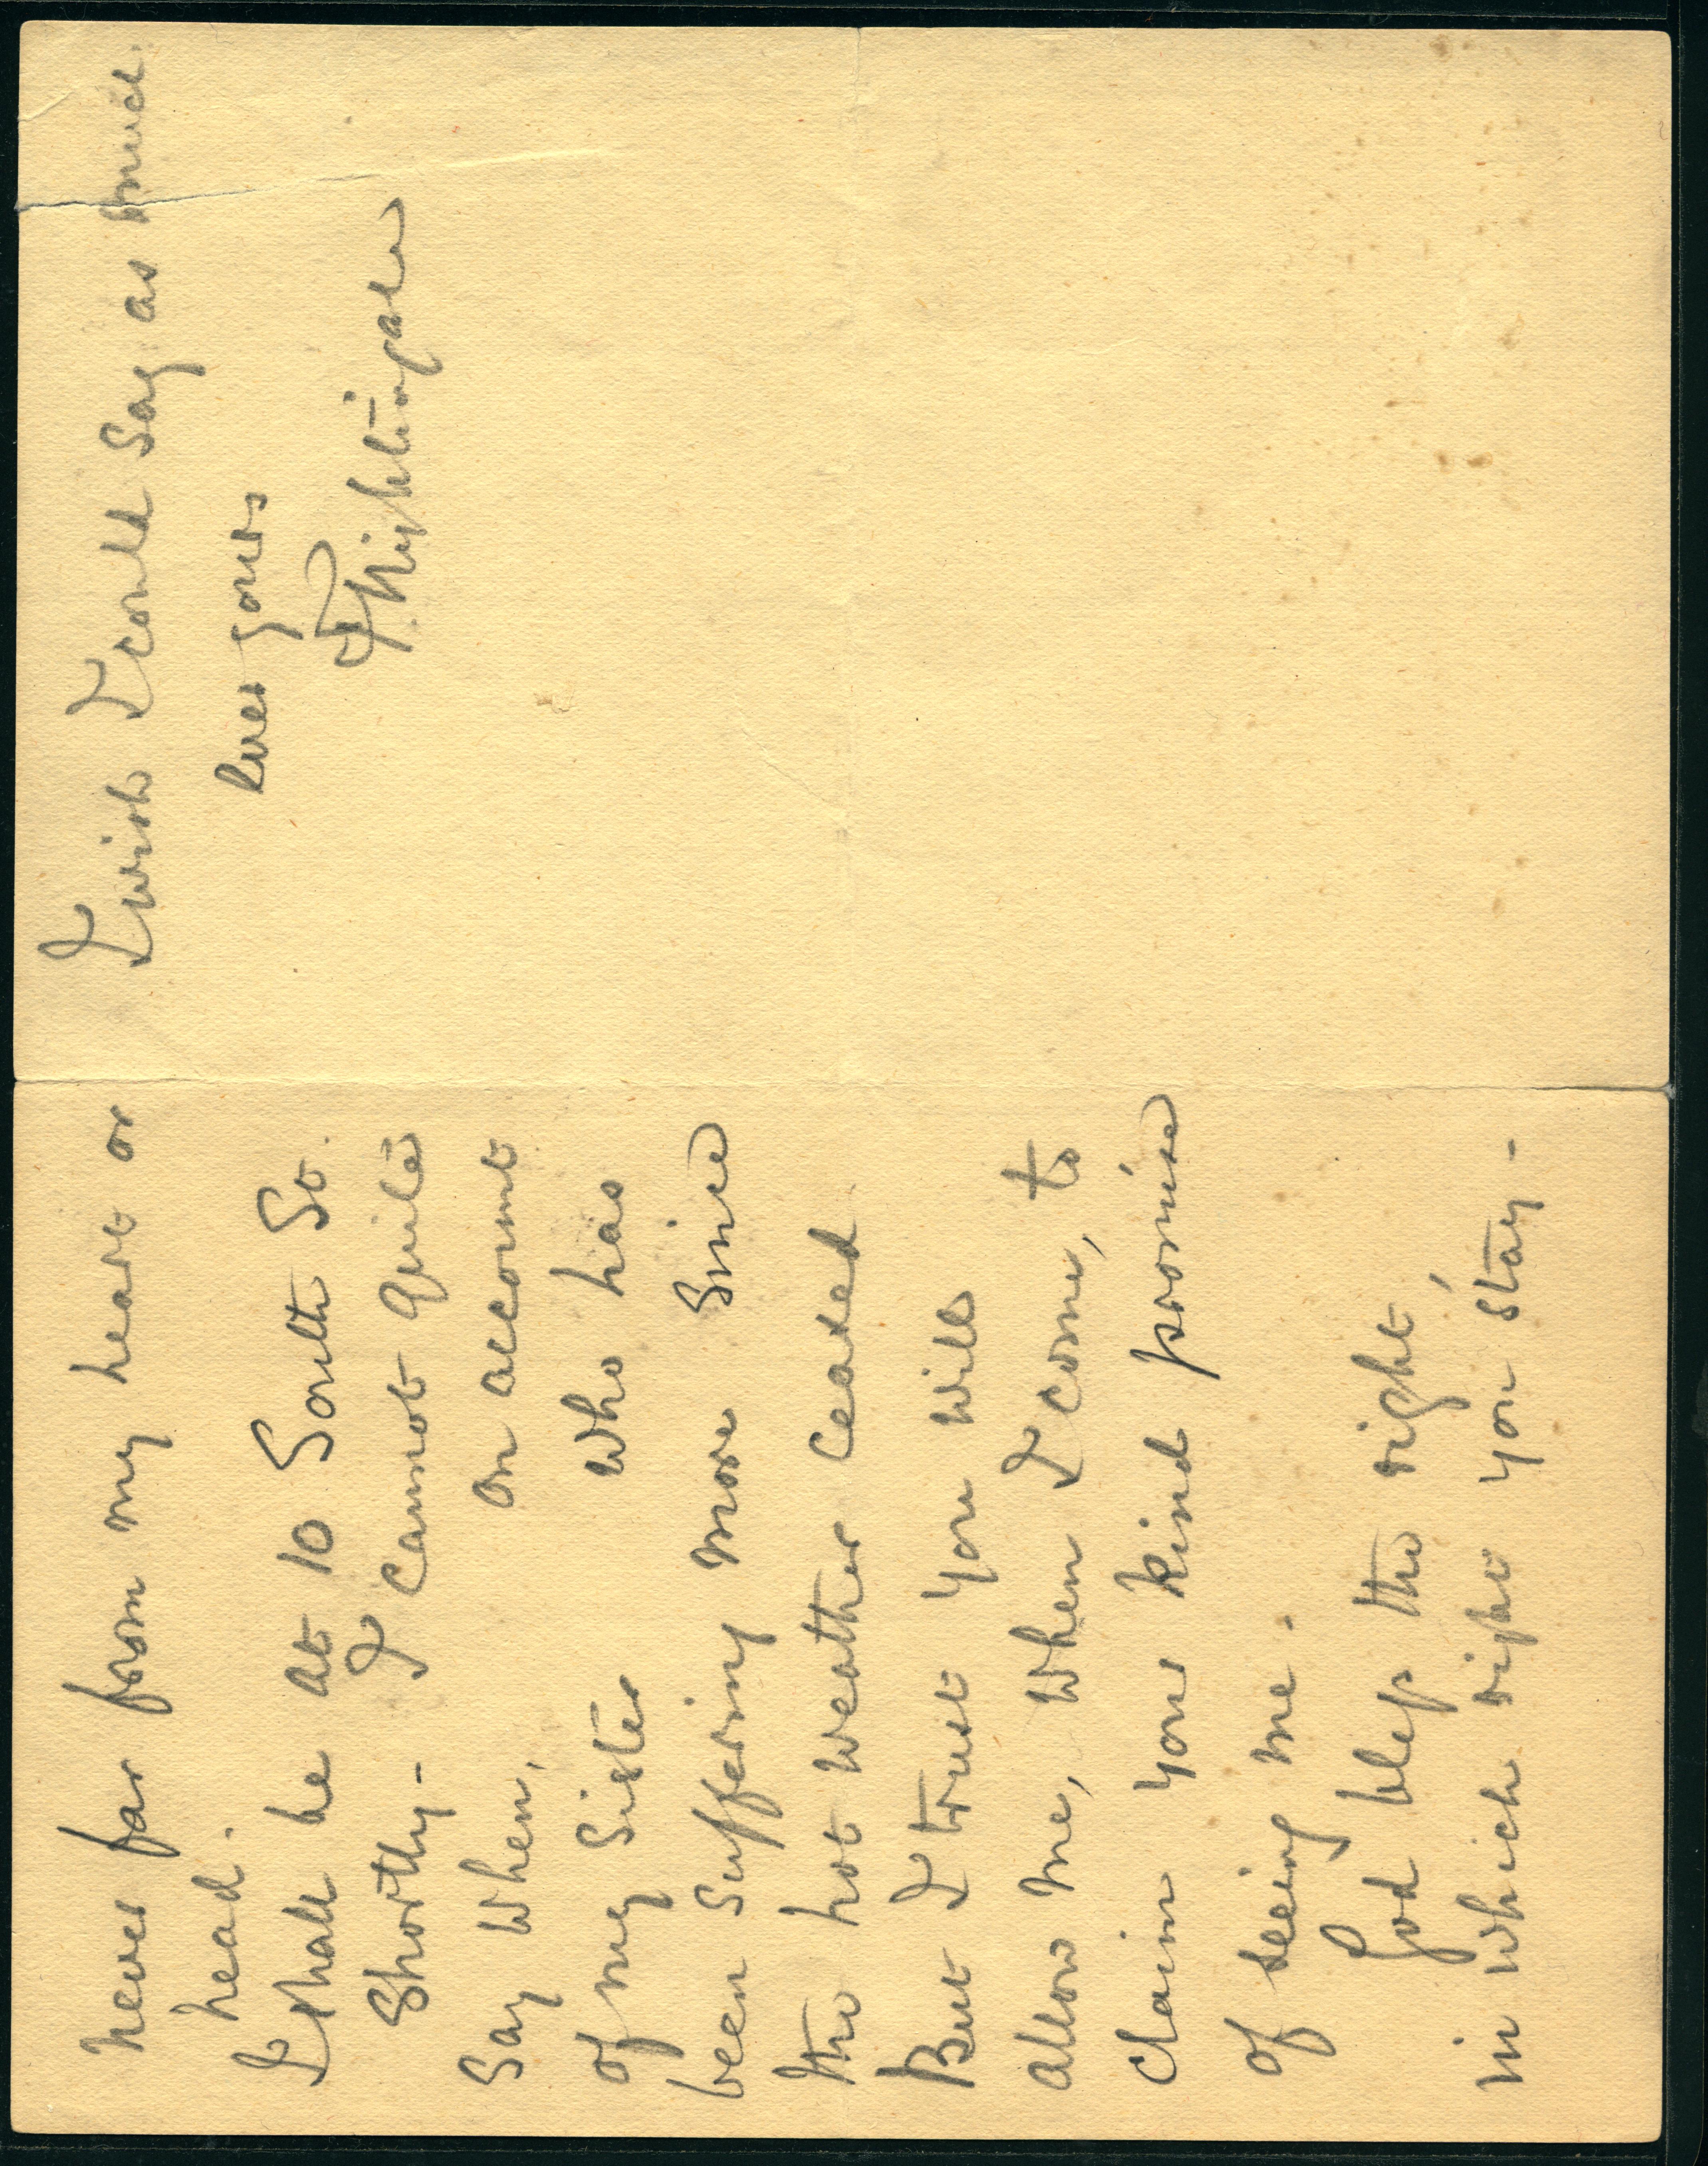 never far from my heart or
head.
I shall be at 10 South St.
shortly - I cannot quite
say when, on account
of my sister who has
been suffering more since
the hot weather ceased.
But I trust you will
allow me, when I come, to
claim your kind promise
of seeing me.
God bless the right,
in which right you stay -
I wish I could say as much.
ever yours
F Nightingale